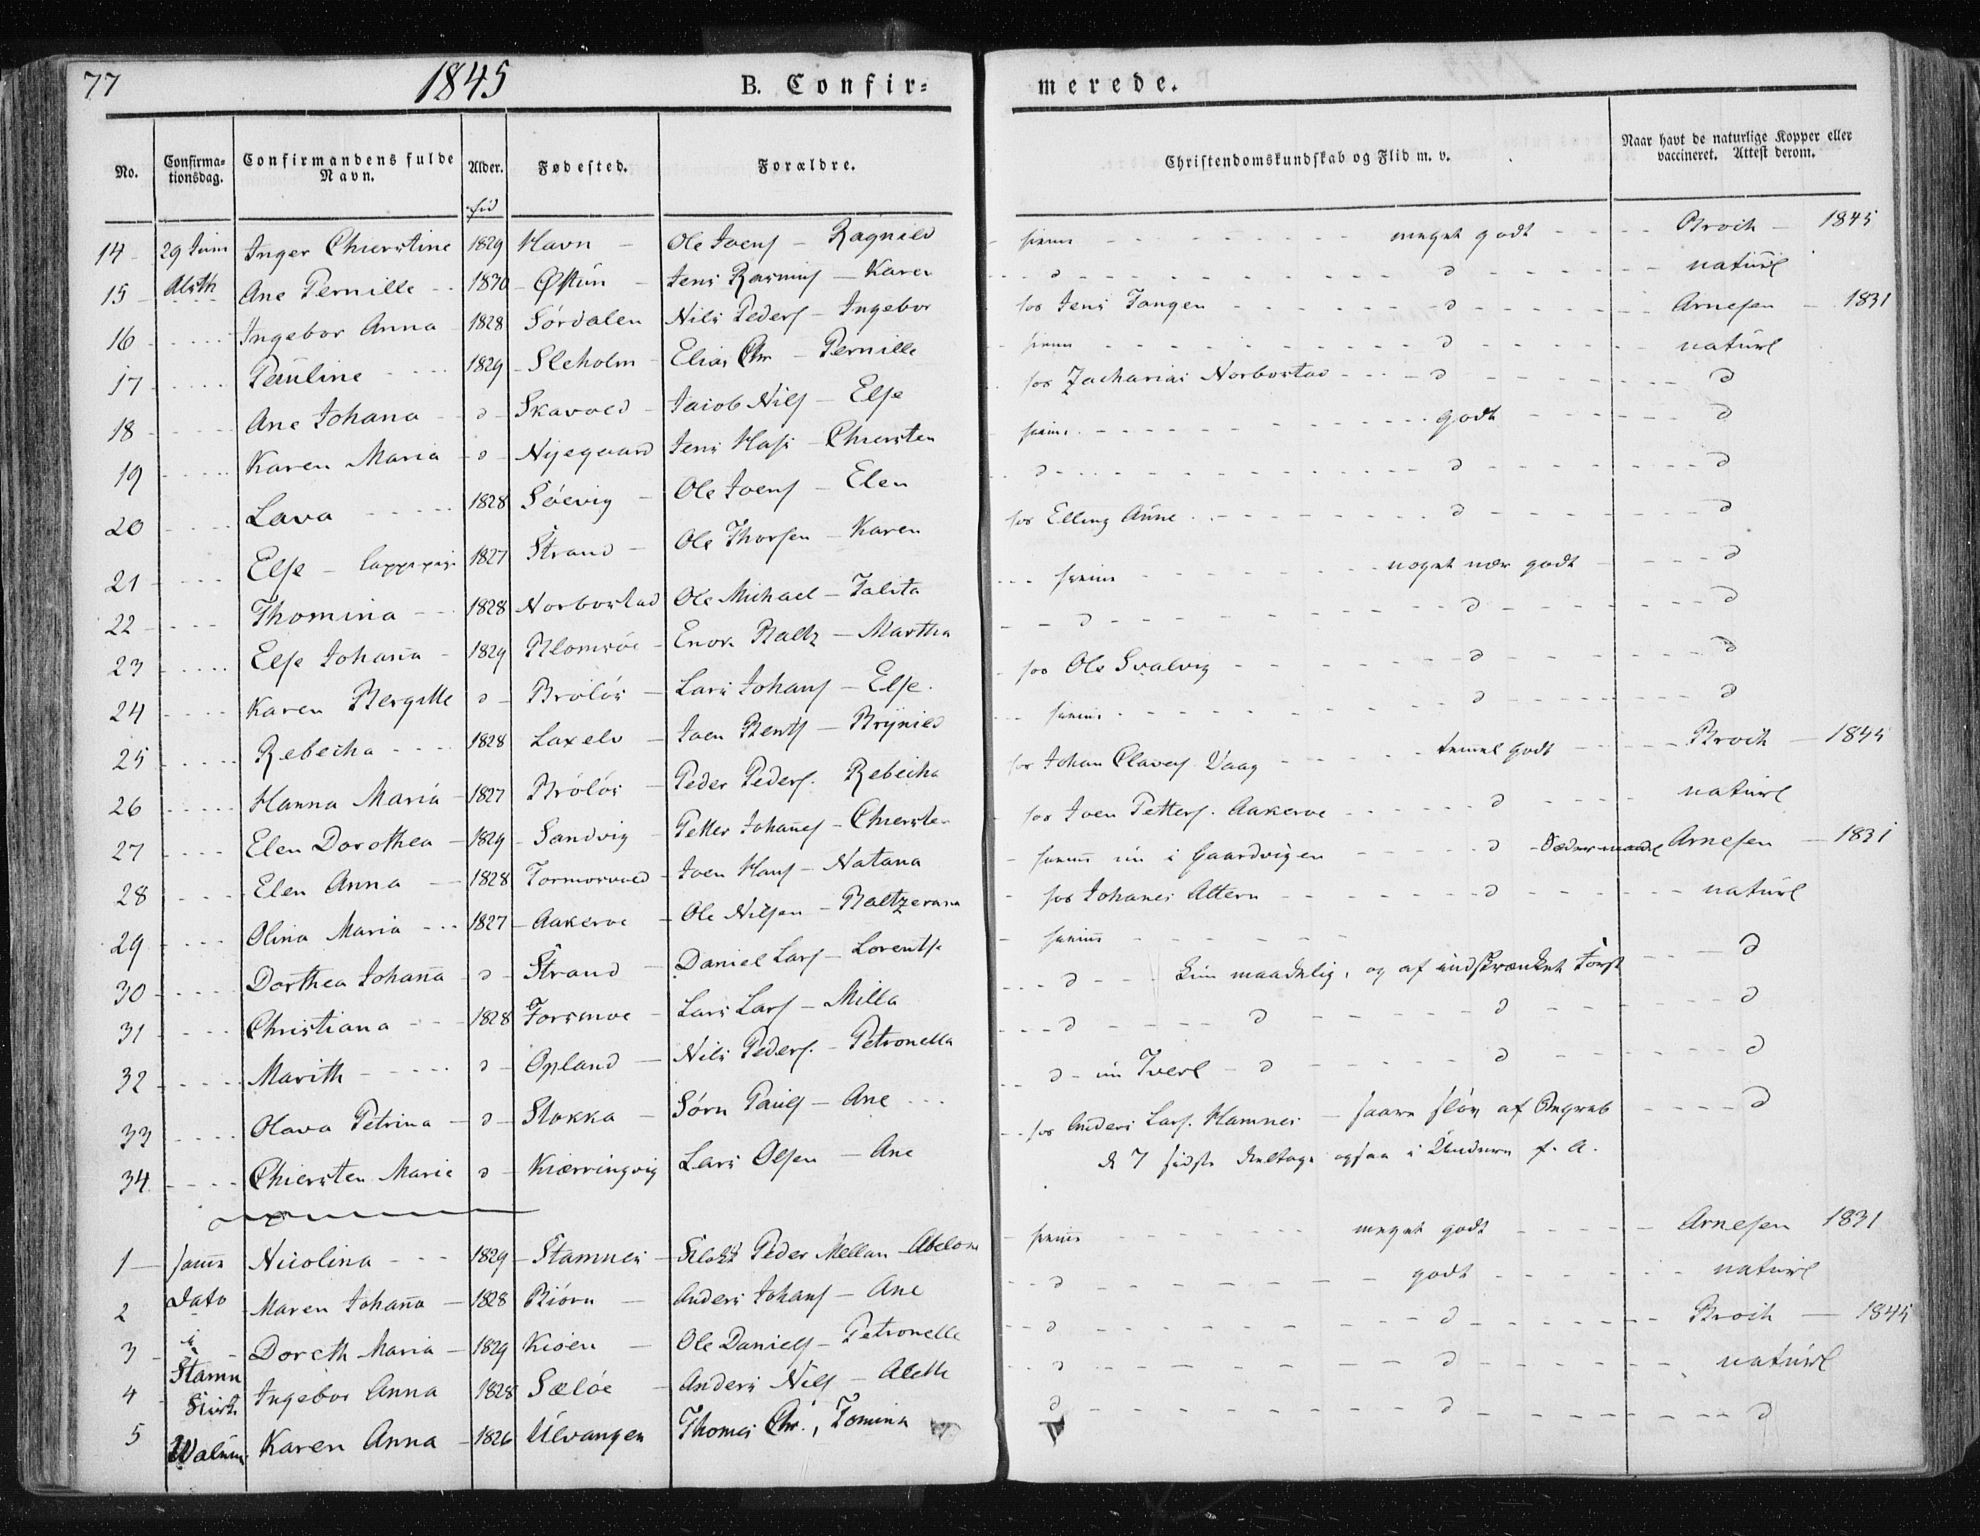 77 1845 B. Confir= merede.
No. Confirma=tionsdag. Confirmandens fulde Navn. Alder. Fødested. Forældre. Christendomskundskab og Flid m. v. Naar havt de naturlige Kopper eller vaccineret. Attest derom.
14 29 Juni Inger Chierstine 1829 Havn Ole Joens - Ragnild meget godt Broch 1845
15 Alsth Ane Pernille 1830 Østun Jens Rasmus - Karen d d naturl
16 Ingebor Anna 1828 Sördalen Nils Peders - Ingebor hos Jens Tangen d Arnesen 1831
17 Pauline 1829 Sleholm Elias Chr - Pernille d naturl
18 Ane Johana d Skavold Jacob Nils - Else hos Zacharias Norbostad d d
19 Karen Maria d Nyegaard Jens Hans - Chiersten godt d
20 Lava 1828 Söevig Ole Joens - Elen d d d
21 Else 1827 Strand Ole Thorsen - Karen hos Elling Aune d d
22 Thomina 1828 Norbostad Ole Michael - Talita noget nær godt d
23 Else Johana 1829 Blomsöe Enok Baltz - Martha d d d
24 Karen Bergitte d Brölös Lars Johans - Else hos Ole Svalvig d d
25 Rebecka 1828 Laxelv Joen Bents - Brynild d d
26 Hanna Maria 1827 Brölös Peder Peders. Rebecka hos Johan Olavers. Vaag temel godt Broch 1845
27 Elen Dorothea 1829 Sandvig Petter Johanes - Chiersten hos Joen Petters. Aakerve d naturl
28 Elen Anna 1828 Tormorvold Joen Hans - Natana i Gaardvigen d Arnesen 1831
29 Olina Maria 1827 Aakerve Ole Nilsen - Baltzerana hos Johanes Altern d naturl
30 Dorthea Johana d Strand Daniel Lars - Lorentse d
31 Christiana 1828 Forsmoe Lars Lars - Milla d maadelig, og af indskrænket d
32 Marith d Opland Nils Peders. - Petronella d d d d
33 Olava Petrina d Stokka Sörn Pauls - Ane d Tverl d d d
34 Chiersten Marie d Kiærringvig Lars Olsen - Ane hos Anders Lars. Hamnes saare slöv af d
7 sidste deltage ogsaa i f. A.
1 samme Nicolina 1829 Stamnes Peder Mellan - Abelone meget godt Arnesen 1831
2 Dato Maren Johana 1828 Biörn Anders Johans - Ane d godt naturl
3 i Doreth Maria 1829 Kiöen Ole Daniels - Petronelle d d Broch 1845
4 Stamn Ingebor Anna 1828 Sælöe Anders Nils - Aleth d d naturl
5 Karen Anna 1826 Ulvangen Thomas Chr., Tomina d d d